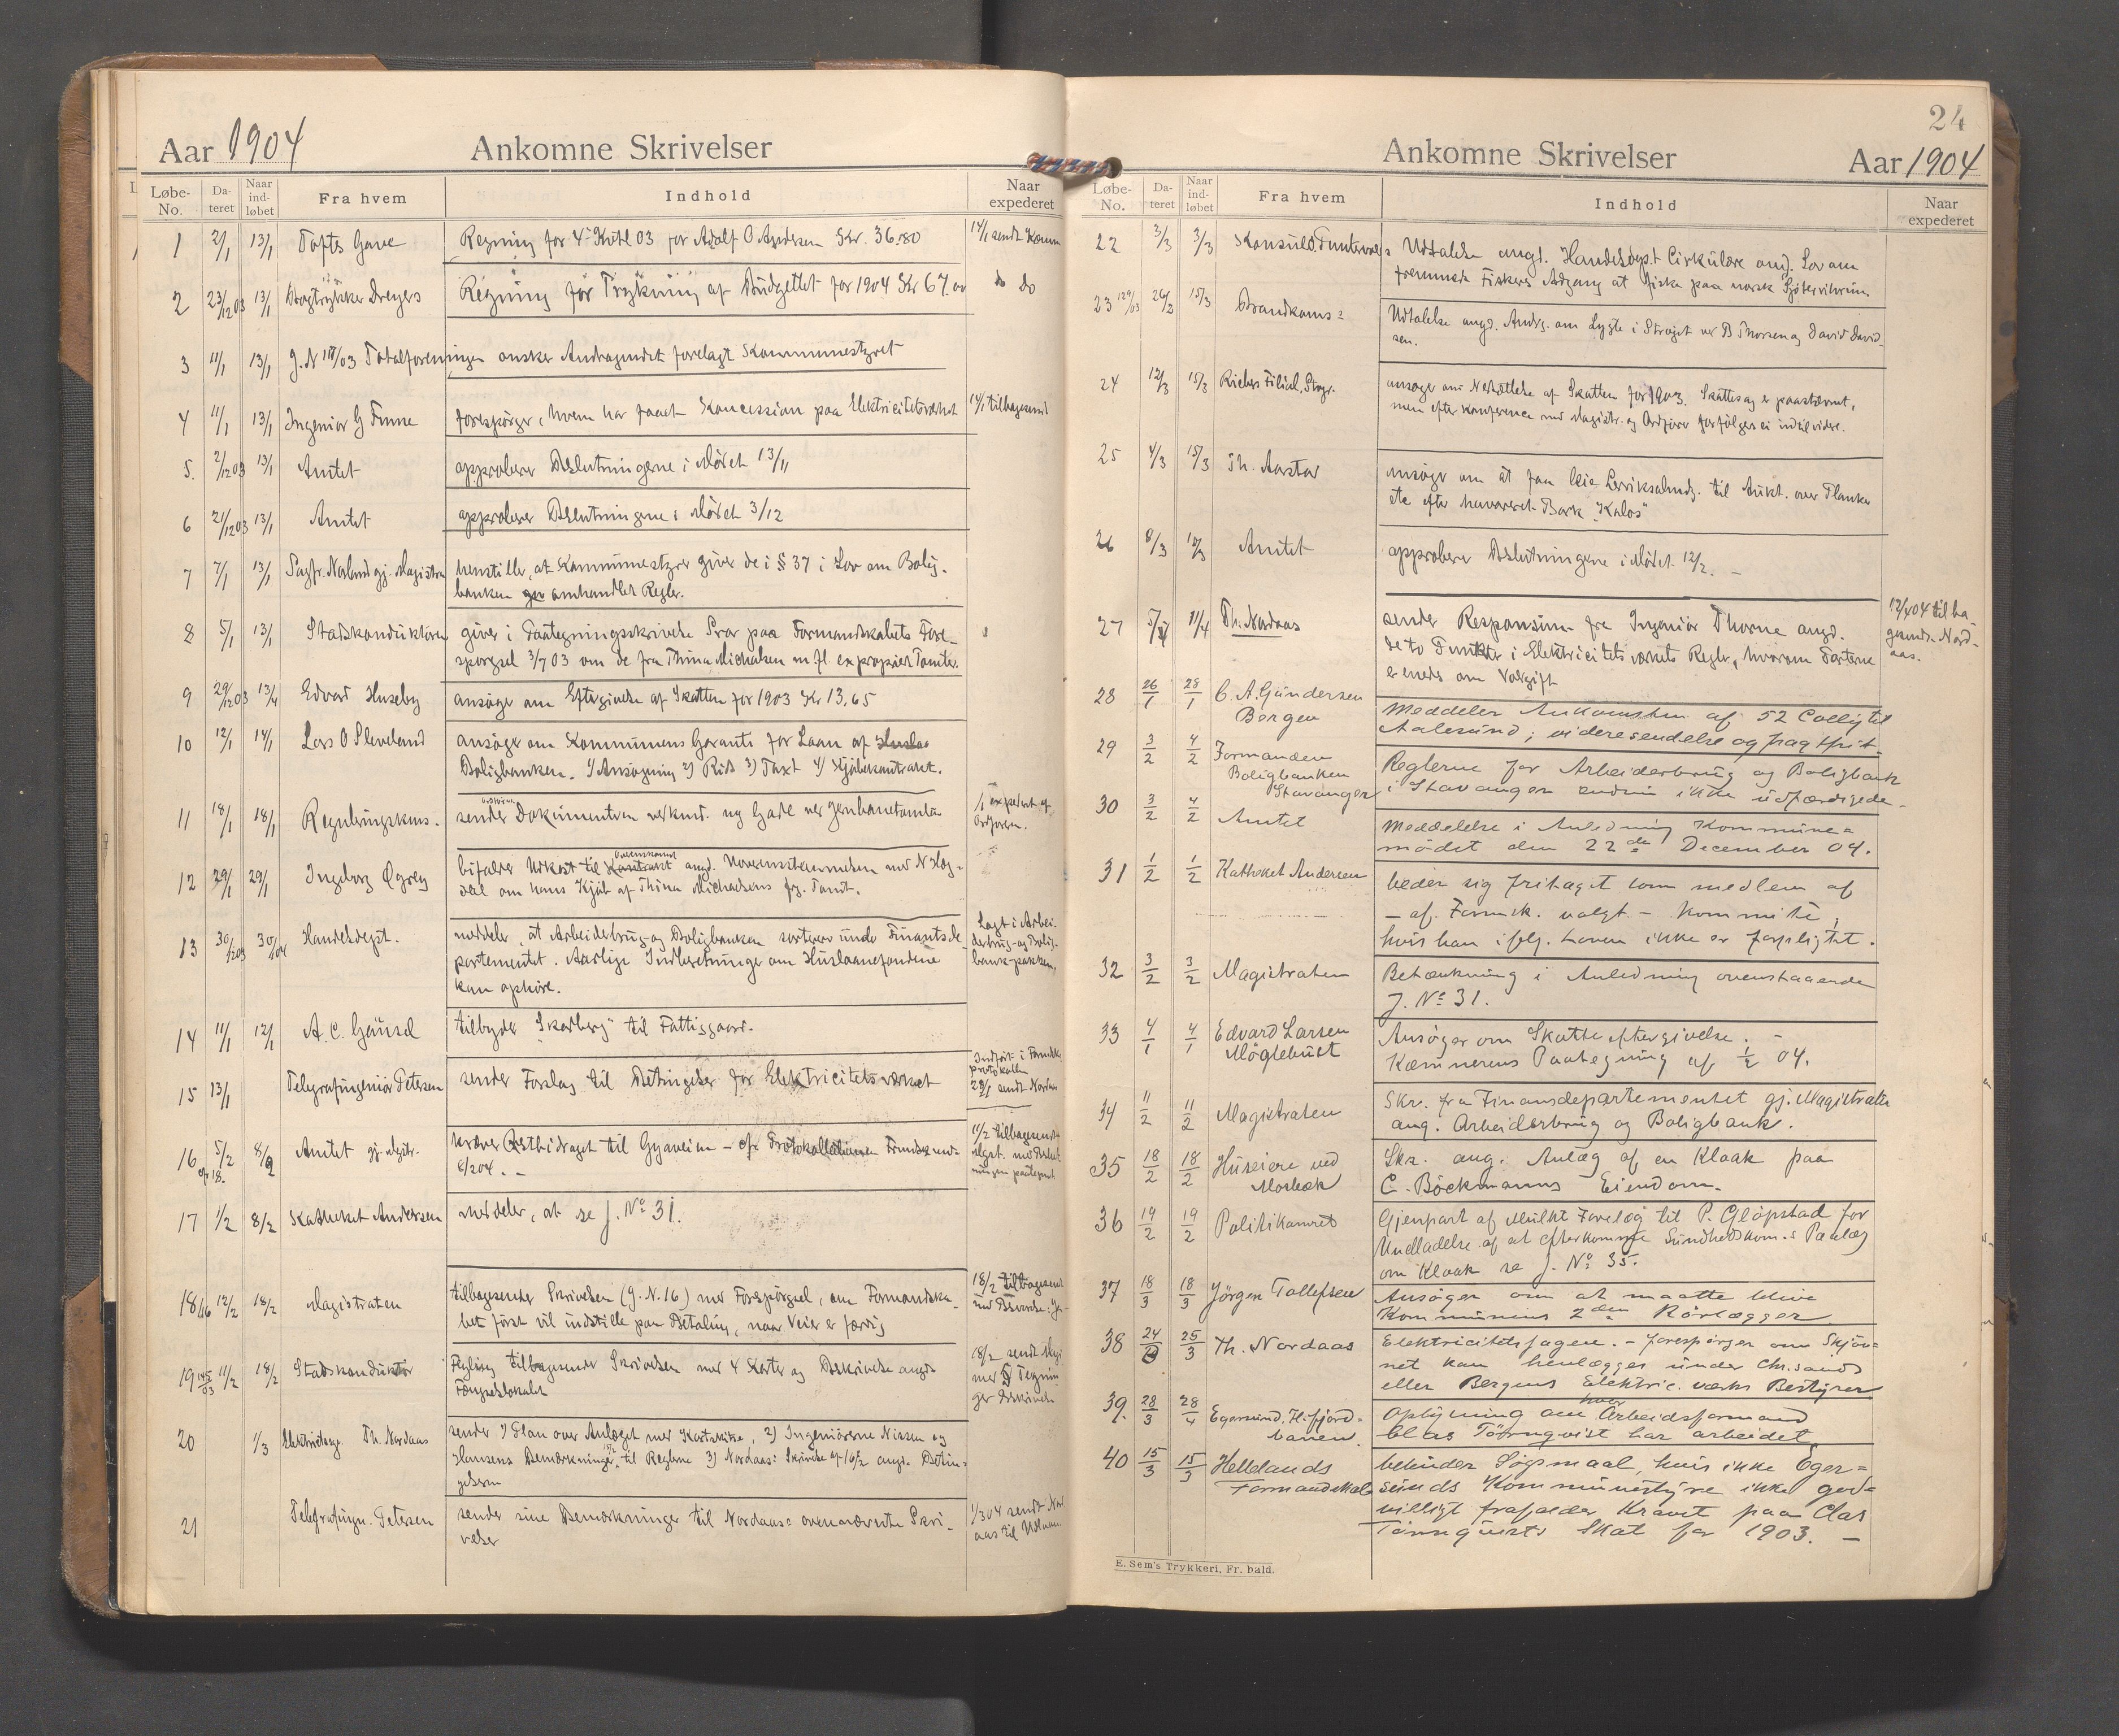 Aar 1904 Ankomne Skrivelser
Løbe-No. Da-teret Naar ind-løbet Fra hvem Indhold Naar expederet
1 2/1 13/1 Tofts Gave Regning for 4. Kvtl 03 for Adolf O Andersen Kr. 36.80 14/1 sendt Kæmn
2 23/12 03 13/1 Bogtrykker Dreyers Regning för Trykning af Budgettet for 1904 Kr 67.00 do Do
3 11/1 13/1 J.N /03 Totalforeningen ønsker Andragendet forelagt Kommunestyret
4 11/1 13/1 Ingeniør G Finne forespørger, hvem har faaet Koncession paa Elektricitetsværket 14/1 tilbagesendt
5. 2/12 03 13/1 Amtet approberer Beslutningerne i Mödet 13/11
6 21/12 03 13/1 Amtet approberer Beslutningerne i Mödet 3/12
7 7/1 13/1 gj. Magistra henstiller, at Kommunestyret giver de i § 37 i Lov om Bolig-
banken omhandlede Regler.
8 5/1 13/1 Stadskonduktøren giver i Paategningsskrivelse Svar paa Formandskabets Fore-
spørgsel 3/7 03 om de fra Thina Michalsen m.fl. exproprierte Tomter.
9 29/12 03 13/1 Edvard Huseby ansøger om Eftergivelse af Skatten for 1903 Kr 13.65
10 12/1 14/1 Lars O Sleveland ansøger om Kommunens Garanti for Laan af
Boligbanken. 1/ Ansøgning 2) Rids 3) Taxt 4) Kjöbekontrakt.
11 18/1 18/1 Reguleringskoms. sender Dokumenterne vedkmd. ny Gade ved Jernbanetomten expedert af
Ordføren.
12 29/1 29/1 Ingeborg Øgrey bifalder Udkast til Overenskomst angd. Overensstemmelsen med N Hog-
dal om hans Kjöb af Thina Michaelsens fg. Tomt.
13 30/12 03 30/1 04 Handelsdept. meddeler, at Arbeiderbrug- og Boligbanken sorterer under Finantsde-
partementet. Aarlige Indberetninger om Huslaanefondene
kan ophöre.
Lagt i Arbei-
derbrug- og Bolig-
bank-pakken,
14 11/1 12/1 A. C. Gausel tilbyder "Skarberg" til Fattiggaard.
15 13/1 Telegrafingeniör Petersen sender Forslag til Betingelser for Elektricitetsværket
Indført i Formdsk
protokollen
29/1 sendt Nordaas
16 5/2 8/2 Amtet gj. Mgstr. kræver Restbidraget til Gyaveien – cfr Protokollationen Formdsk
6/2 04. –
cfr 18.
11/2 tilbagesendt
Mgst. med Beslut-
ningen paategnet
17 1/2 8/2 Katheket Andersen meddeler, at se J. No 31.
18 16 12/2 18/2 Magistraten tilbagesender Skrivelsen (J.N.16) med Forespörgsel, om Formandska-
bet först vil indstille paa Betaling, naar Veien er færdig
18/2 tilbagesendt
med Besvarelse
19 145/03 11/2 18/2 Stadskonduktör tilbagesender Skrivelsen med 4 Karter og Beskrivelse angd.
Fængselslokalet
18/2 sendt
med Tegnin-
ger Beskrivelse
20 1/3 Th. Nordaas sender 1) Plan over Anlæget med Kartskitse, 2) Ingeniörerne Nissen og
Hansens Bemærkninger til Reglerne 3) Nordaas: Skrivelse af 16/2 angd. Betin-
gelserne
21 Telegrafingn. Petersen sender sine Bemærkninger til Nordaas: ovennævnte Skri-
velser
1/3 04 sendt Nord
aas til Udtaa

24
Ankomne Skrivelser Aar 1904
Løbe-No. Da-teret Naar ind-løbet Fra hvem Indhold Naar expederet
22 3/3 3/3 Konsul O. Puntervolds Udtalelse angd. Handelsdept. Cirkulære angd. Lov om
fremmede Fiskeres Adgang at fiske paa norsk Sjöterritorium
23 129/03 26/2 15/3 Brandkoms: Udtalelse angd. Andrg. om Lygte i Strøget ved B Thorsen og David David-
sen.
24 12/3 15/3 Riebers Filial, Stvgr. ansøger om Nedsættelse af Skatten for 1903. Skattesag er paastævnt,
men efter Konference med Magistr. og Ordfører forfölges ei indtil videre.
25 4/3 15/3 Th. Aarstad ansøger om at faa leie Lerviksalmdg. til Aukt. over Planker
etc efter havareret Bark "Kalos"
26 8/3 Amtet approberer Beslutningerne i Mödet 12/2. –
27 5/4 11/4 Th. Nordaas sender Responsum fra Ingeniør Thorne angd.
de to Punkter i Elektricitetsværkets Regler, hvorom Parterne
er uenes om Voldgift
12/4 04 tilba-
gesendt Nord-
aas.
28 26/1 28/1 C. A. Gundersen
Bergen Meddeler Ankomsten af 52 Colly til
Aalesund; videresendelse og fragtfrit.
29 3/2 4/2 Formanden
Boligbanken
Stavanger Reglerne for Arbeiderbrug og Boligbank
i Stavanger endnu ikke udfærdigede.
30 3/2 4/2 Amtet Meddelelse i Anledning Kommune=
mödet den 22de December 04.
31 1/2 1/2 Katheket Andersen beder sig fritaget som medlem af
– af Formsk. valgt – Kommité,
hvis han iflg. Loven ikke er forpligtet.
32 3/2 3/2 Magistraten Betænkning i Anledning ovenstaaende
J. No 31.
33 4/1 4/1 Edvard Larsen
Möglebust Ansöger om Skatteeftergivelse. –
Kæmnerens Paategning af 1/2 04.
34 11/2 11/2 Magistraten Skr. fra Finansdepartementet gj. Magistraten
ang. Arbeiderbrug og Boligbank.
35 18/2 18/2 Huseiere ved
Mosbæk Skr. ang. Anlæg af en Kloak paa
C. Böckmanns Eiendom.
36 19/2 19/2 Politikamret Gjenpart af Mulkt Forelæg til P. Glöpstad for
Undladelse af at efterkomme Sundhedskom.s Paalæg
om Kloak se J. No 35.
37 18/3 18/3 Jörgen Tollefsen Ansöger om at maatte blive
Kommunens 2den Rörlægger
38 24/ 25/3 Th. Nordaas Elektricitetssagen. – forespörger om Skjön=
net kan henlægges under Chr.sands
eller Bergens Elektric. værks Bestyrer
39. 28/3 28/4 Egersund. Fl.fjord=
banen. Oplysning om hvor Arbeidsformand
Clas Törnqvist har arbeidet
40 15/3 15/3 Hellelands
Formandskab bebuder Sögsmaal, hvis ikke Eger=
sunds Kommunestyre ikke god=
villigt frafalder Kravet paa Clas
Törnquists Skat for 1903. –
E. Sem's Trykkeri, Fr. hald.